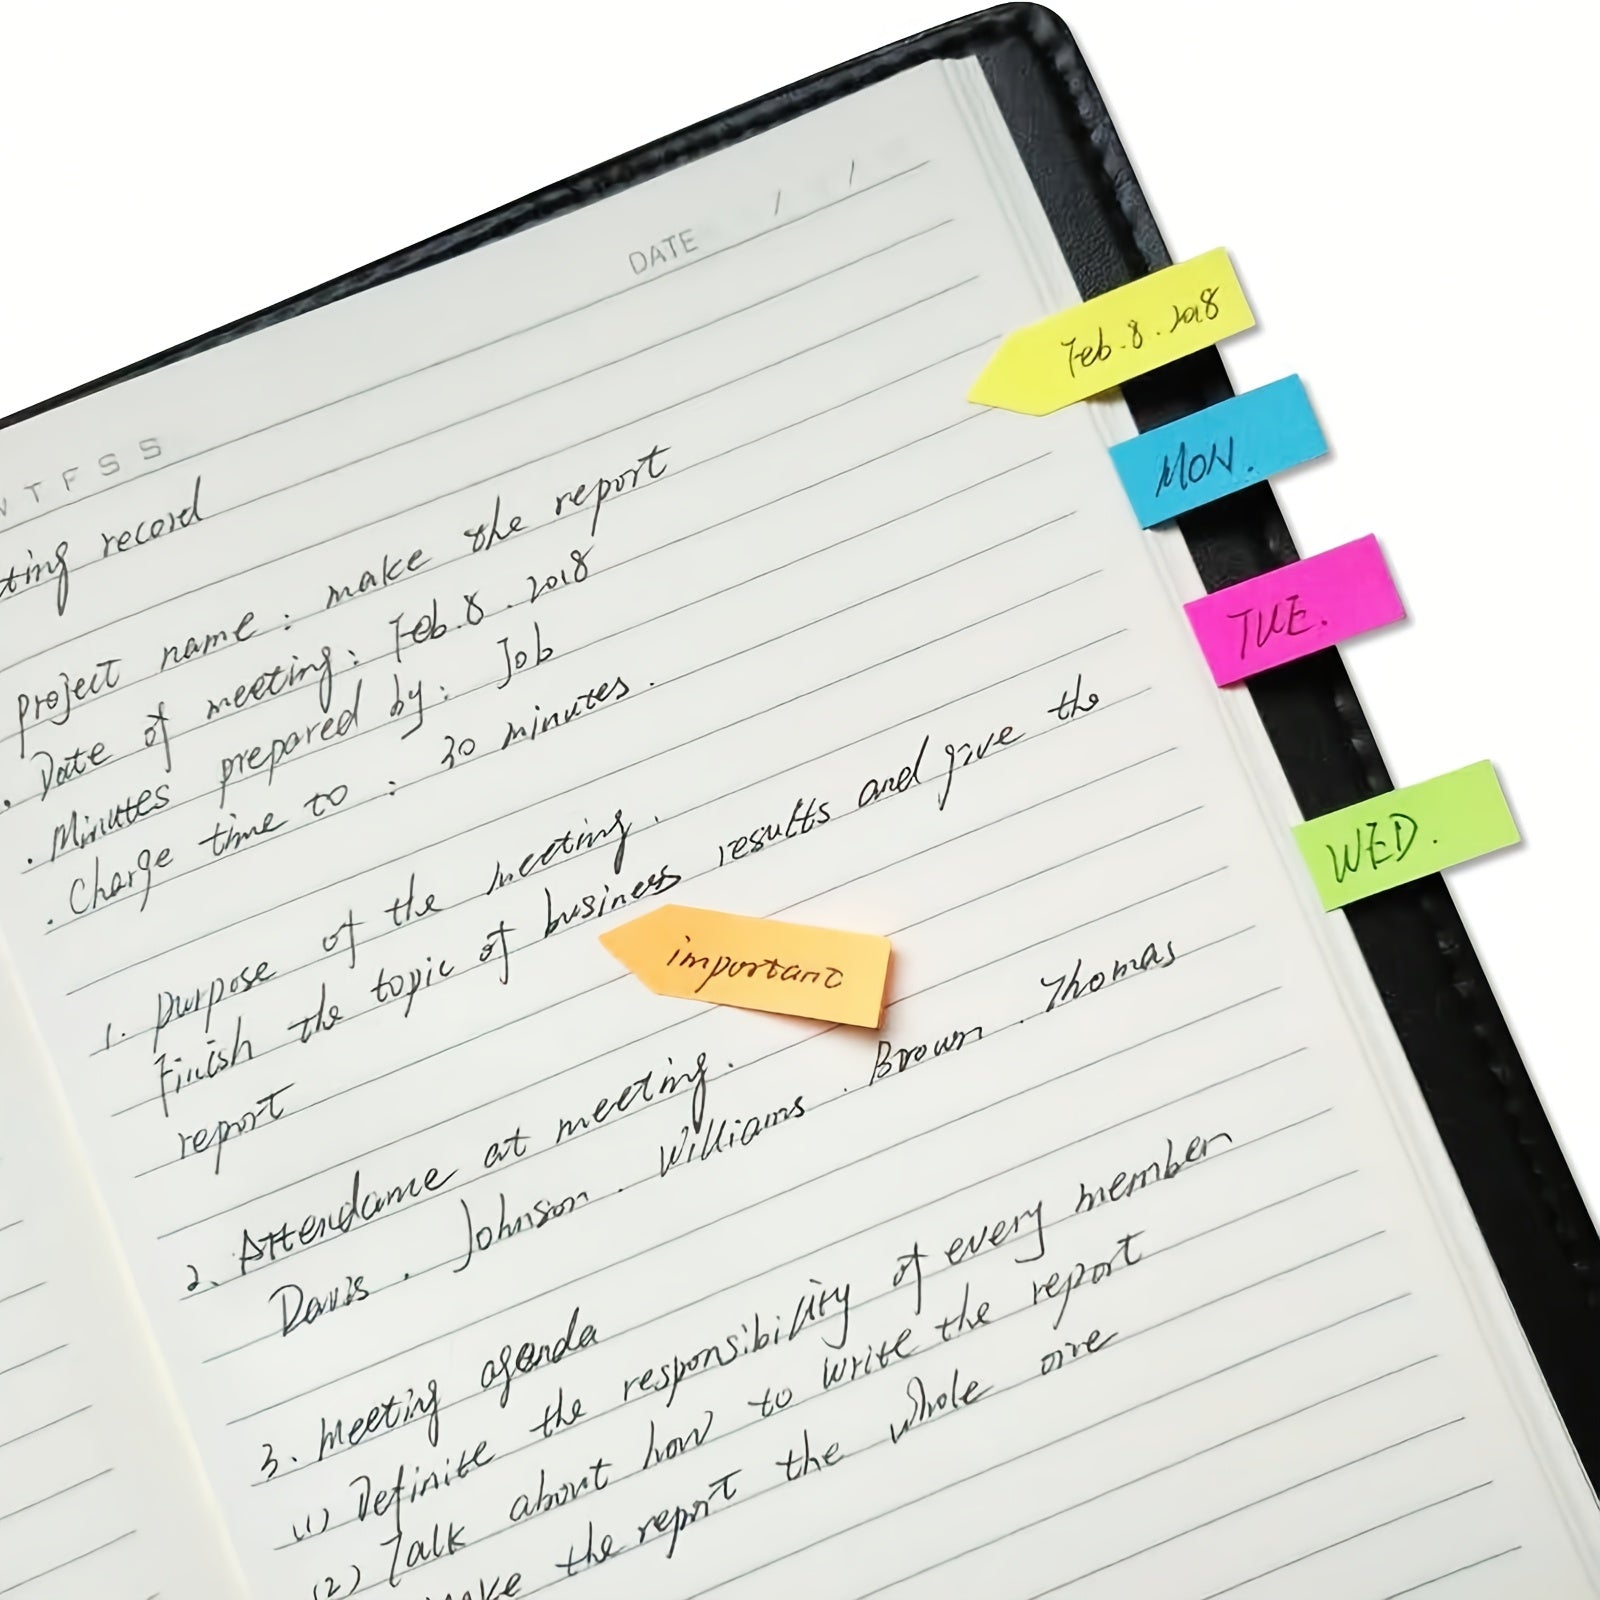 DATE / /
T F S S
ting record
project name : make the report
. Date of meeting : Feb. 8 . 2018
. Minutes prepared by : Job
. Charge time to : 30 minutes .
1. purpose of the meeting .
Finish the topic of business results and give the
report
2. Attendame at meeting .
Davis . Johnson . Williams . Brown . Thomas
3. Meeting agenda
(1) Definite the responsibility of every member
(2) Talk about how to write the report
make the report the whole one
important
Feb. 8 . 2018
MON.
TUE.
WED.